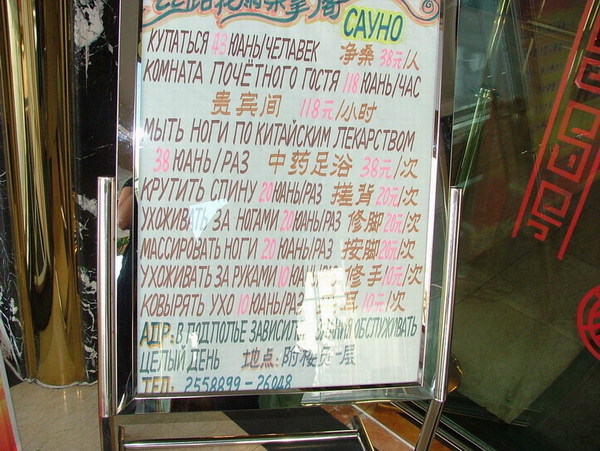 САУНО
КУПАТЬСЯ 43 ЮАНЬ/ЧЕЛАВЕК 净桑 38元/人
КОМНАТА ПОЧЁТНОГО ГОСТЯ 118 ЮАНЬ/ЧАС
贵宾间 118元/小时
МЫТЬ НОГИ ПО КИТАЙСКИМ ЛЕКАРСТВОМ
38 ЮАНЬ/РАЗ 中药足浴 38元/次
КРУТИТЬ СПИНУ 20 ЮАНЬ/РАЗ 搓背 20元/次
УХОЖИВАТЬ ЗА НОГАМИ 20 ЮАНЬ/РАЗ 修脚 20元/次
МАССИРОВАТЬ НОГИ 20 ЮАНЬ/РАЗ 按脚 20元/次
УХОЖИВАТЬ ЗА РУКАМИ 10 修手 10元/次
КОВЫРЯТЬ УХО 10 ЮАНЬ/РАЗ 耳 10元/次
АДР: В ПОДПОЛЬЕ ОБСЛУЖИВАТЬ
ЦЕЛЫЙ ДЕНЬ 地点: 附楼负一层
ТЕЛ: 2558899-26048